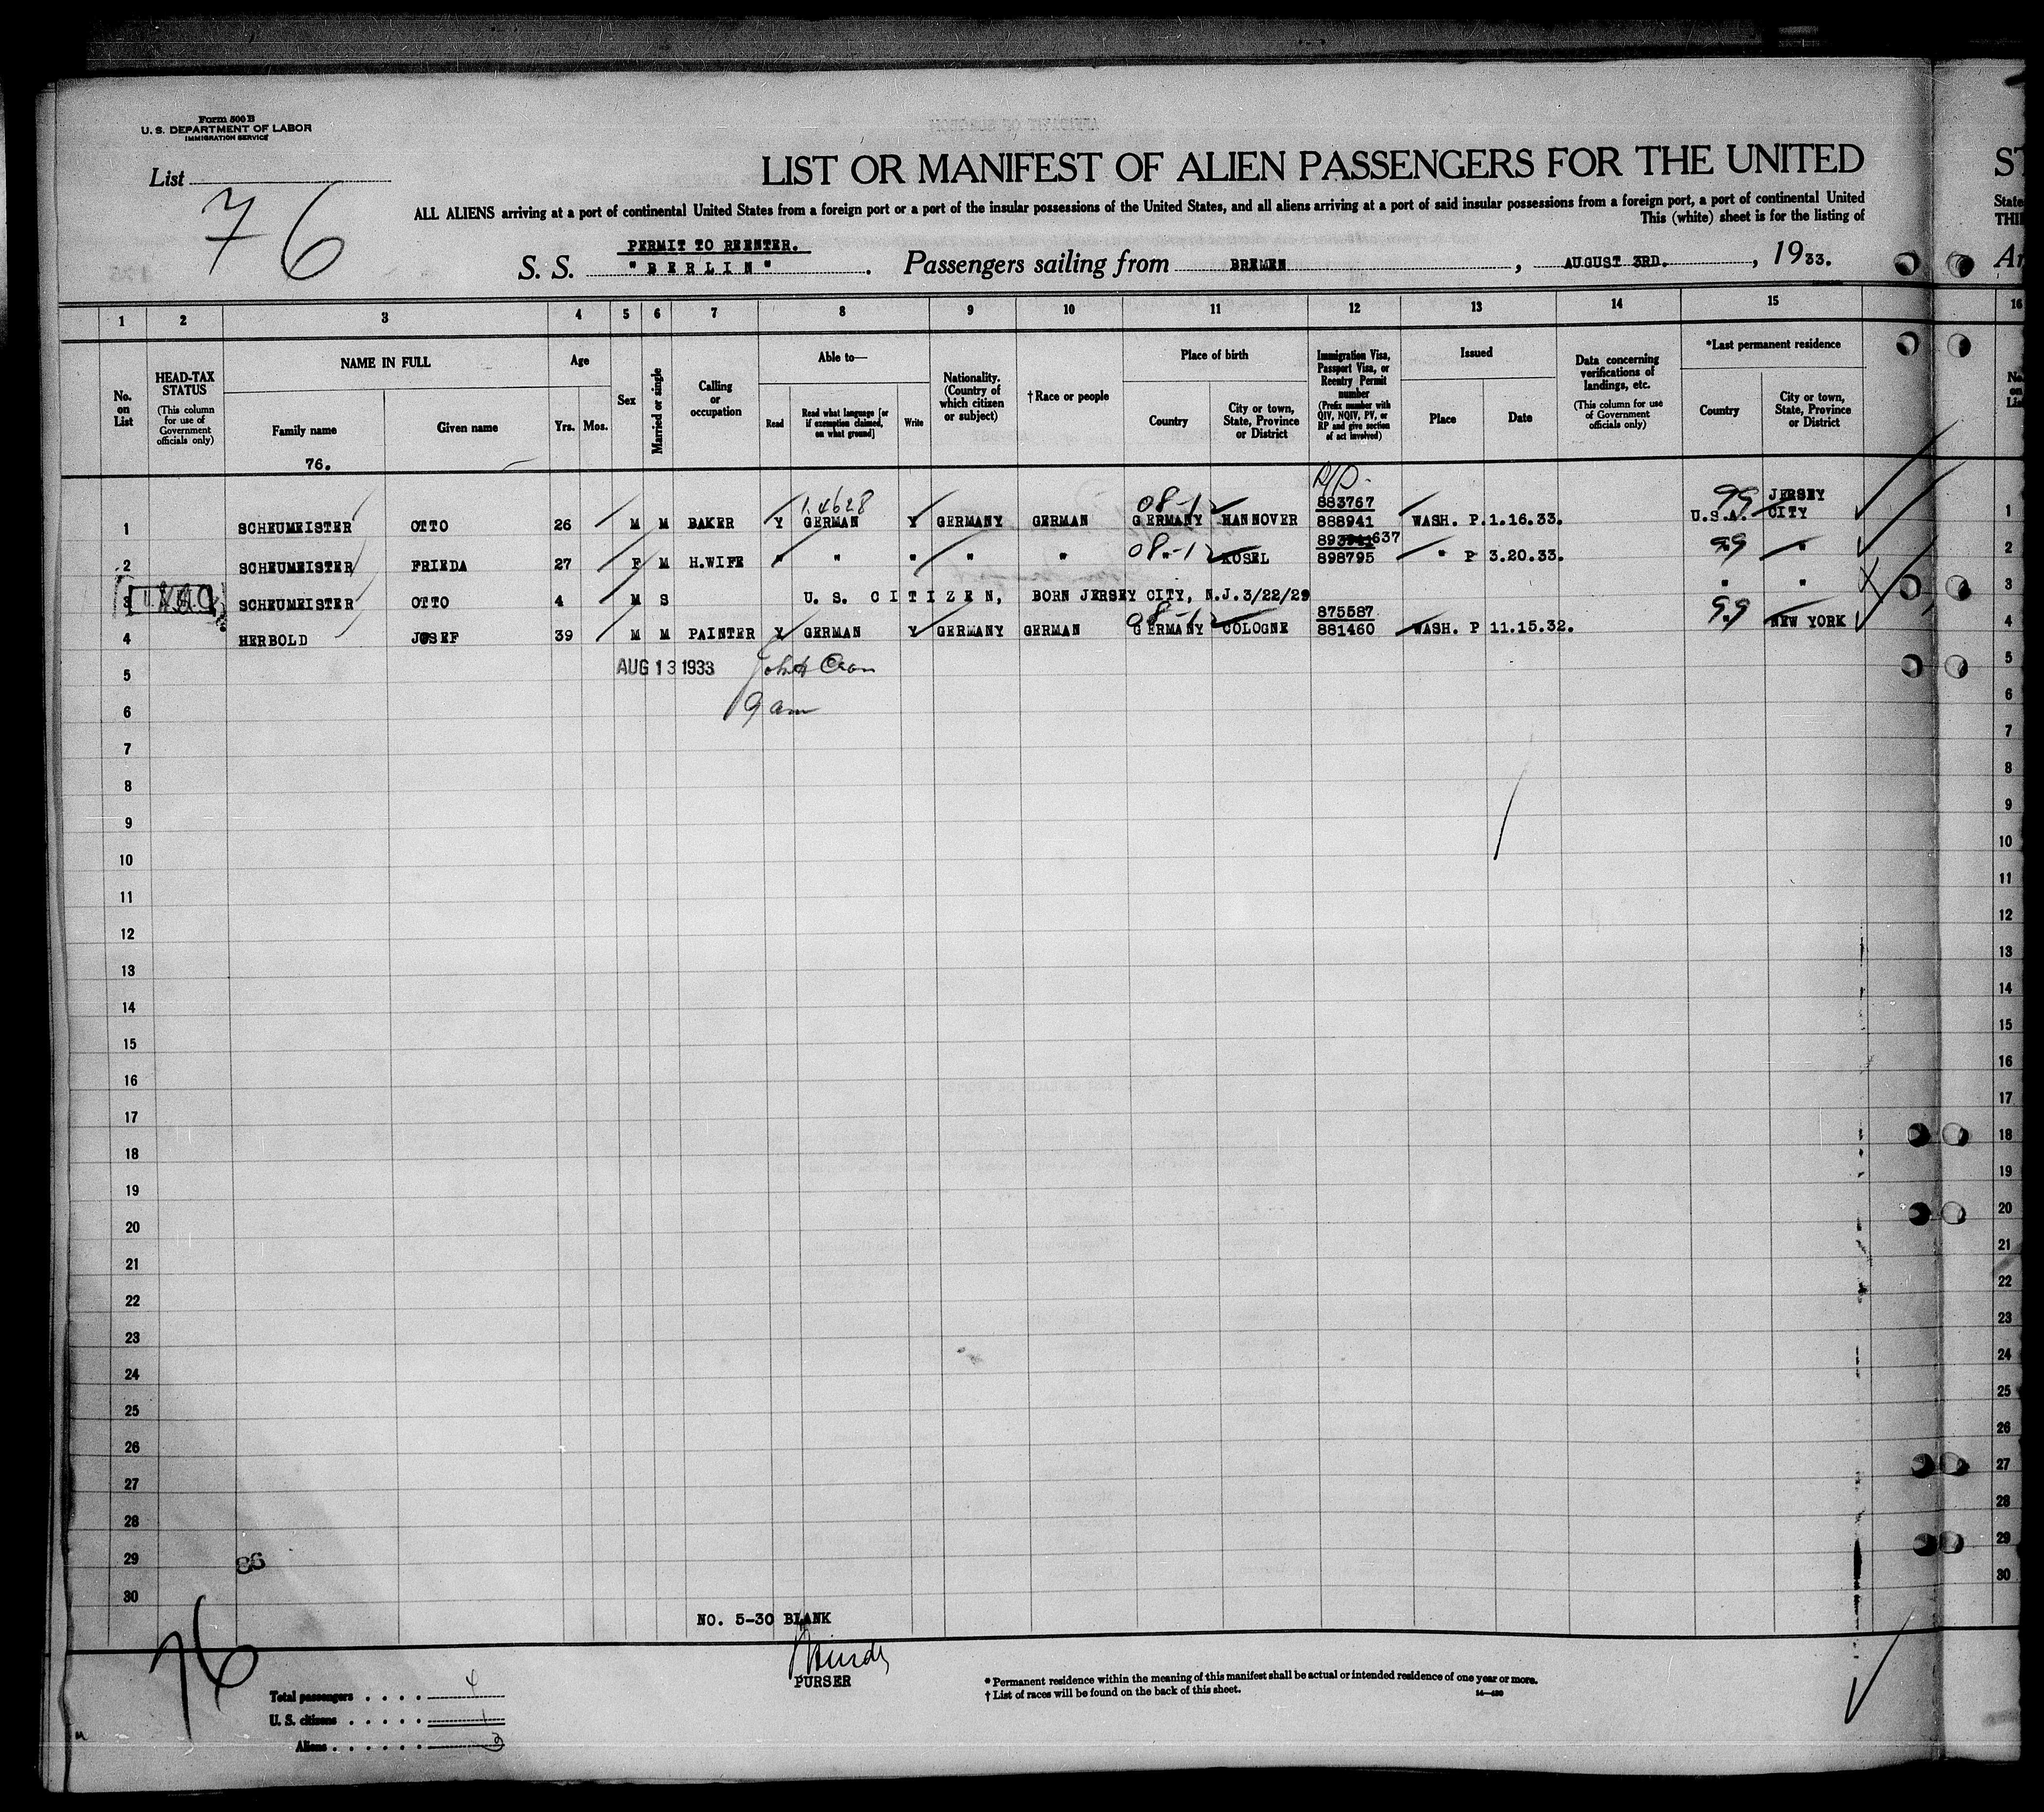 Form 500 B
U. S. DEPARTMENT OF LABOR
IMMIGRATION SERVICE
List
76
LIST OR MANIFEST OF ALIEN PASSENGERS FOR THE UNITED
ST
ALL ALIENS arriving at a port of continental United States from a foreign port or a port of the insular possessions of the United States, and all aliens arriving at a port of said insular possessions from a foreign port, a port of continental United
State
This (white) sheet is for the listing of
THI
PERMIT TO REENTER.
S. S. "BERLIN". Passengers sailing from BREMEN, AUGUST 3RD., 1933.
Ar
1 2 3 4 5 6 7 8 9 10 11 12 13 14 15 16
No. on List
HEAD-TAX STATUS
(This column for use of Government officials only)
NAME IN FULL
Family name
Given name
Age
Yrs. Mos.
Sex
Married or single
Calling or occupation
Able to—
Read
Read what language [or if exemption claimed, on what ground]
Write
Nationality. (Country of which citizen or subject)
† Race or people
Place of birth
Country
City or town, State, Province or District
Immigration Visa, Passport Visa, or Reentry Permit number
(Prefix number with QIV, NQIV, PV, or RP and give section of act involved)
Issued
Place
Date
Data concerning verifications of landings, etc.
(This column for use of Government officials only)
*Last permanent residence
Country
City or town, State, Province or District
No. on List
76.
1 SCHEUMEISTER OTTO 26 M M BAKER Y GERMAN Y GERMANY GERMAN 08-1 GERMANY HANNOVER 883767 888941 WASH. P. 1.16.33. 99 U.S.A. JERSEY CITY 1
2 SCHEUMEISTER FRIEDA 27 F M H.WIFE " " " " " 08-1 " KOSEL 637 898795 " P 3.20.33. 99 " " 2
3 SCHEUMEISTER OTTO 4 M S U. S. CITIZEN, BORN JERSEY CITY, N.J. 3/22/29 " " 3
4 HERBOLD JOSEF 39 M M PAINTER Y GERMAN Y GERMANY GERMAN 08-1 GERMANY COLOGNE 875587 881460 WASH. P 11.15.32. 99 " NEW YORK 4
5 AUG 13 1933 5
6 9 am 6
7 7
8 8
9 9
10 10
11 11
12 12
13 13
14 14
15 15
16 16
17 17
18 18
19 19
20 20
21 21
22 22
23 23
24 24
25 25
26 26
27 27
28 28
29 86 29
30 30
NO. 5-30 BLANK
76
PURSER
Total passengers . . . . 4
U. S. citizens . . . . . 1
Aliens . . . . . . 3
* Permanent residence within the meaning of this manifest shall be actual or intended residence of one year or more.
† List of races will be found on the back of this sheet.
14—430